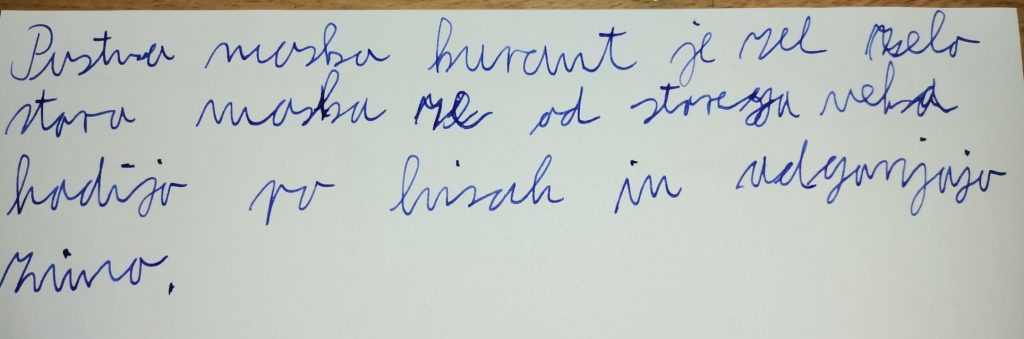 Pustna maska kurant je zel zelo
stara maska že od starega veka
hodijo po hišah in odganjajo
zimo.